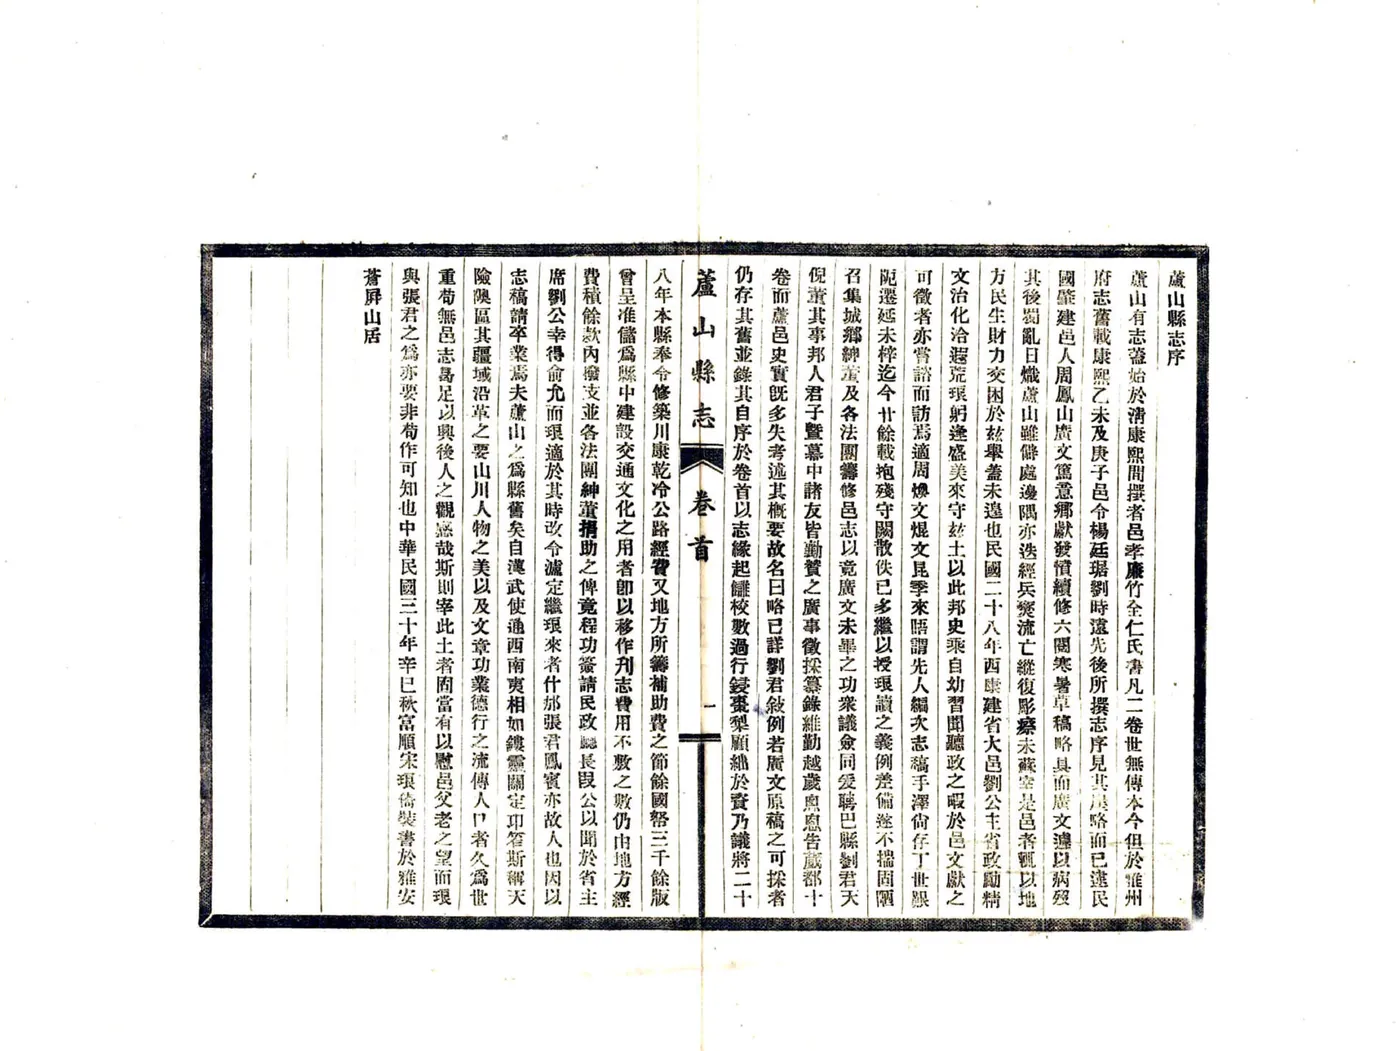 蘆山縣志序
蘆山有志蓋始於清康熙間撰者邑孝廉竹全仁氏書凡二卷世無傳本今但於雅州
府志舊載康熙乙未及庚子邑令楊廷琚劉時遠先後所撰志序見其厓略而已逮民
國肇建邑人周鳳山廣文篤意鄉獻發憤續修六閱寒暑草稿略具而廣文遽以病歿
其後蜀亂日熾蘆山雖僻處邊隅亦迭經兵燹流亡縱復彫瘵未蘇宰是邑者輒以地
方民生財力交困於玆舉蓋未遑也民國二十八年西康建省大邑劉公主省政勵精
文治化洽遐荒琅躬逢盛美來守玆土以此邦史乘自幼習聞聽政之暇於邑文獻之
可徵者亦嘗諮而訪焉適周煥文焜文昆季來晤謂先人編次志稿手澤尙存丁世艱
阨遷延未梓迄今廿餘載抱殘守闕散佚已多繼以授琅讀之義例差備遂不揣固陋
召集城鄉紳董及各法團籌修邑志以竟廣文未畢之功衆議僉同爰聘巴縣劉君天
倪董其事邦人君子曁幕中諸友皆勤贊之廣事徵採纂錄維勤越歲悤悤告蕆都十
卷而蘆邑史實旣多失考述其槪要故名曰略已詳劉君敍例若廣文原稿之可採者
仍存其舊並錄其自序於卷首以志緣起讎校數過行鋟棗棃顧絀於貲乃議將二十
蘆山縣志 卷首 一
八年本縣奉令修築川康乾冷公路經費又地方所籌補助費之節餘國幣三千餘版
曾呈准儲爲縣中建設交通文化之用者卽以移作刋志費用不敷之數仍由地方經
費積餘款內撥支並各法團紳董捐助之俾竟程功簽請民政廳長段公以聞於省主
席劉公幸得俞允而琅適於其時改令瀘定繼琅來者什邡張君鳳賓亦故人也因以
志稿請卒業焉夫蘆山之爲縣舊矣自漢武使通西南夷相如鏤靈關定卭笮斯稱天
險隩區其疆域沿革之要山川人物之美以及文章功業德行之流傳人口者久爲世
重苟無邑志曷足以興後人之觀感哉斯則宰此土者固當有以慰邑父老之望而琅
與張君之爲亦要非苟作可知也中華民國三十年辛巳秋富順宋琅倚裝書於雅安
蒼屛山居